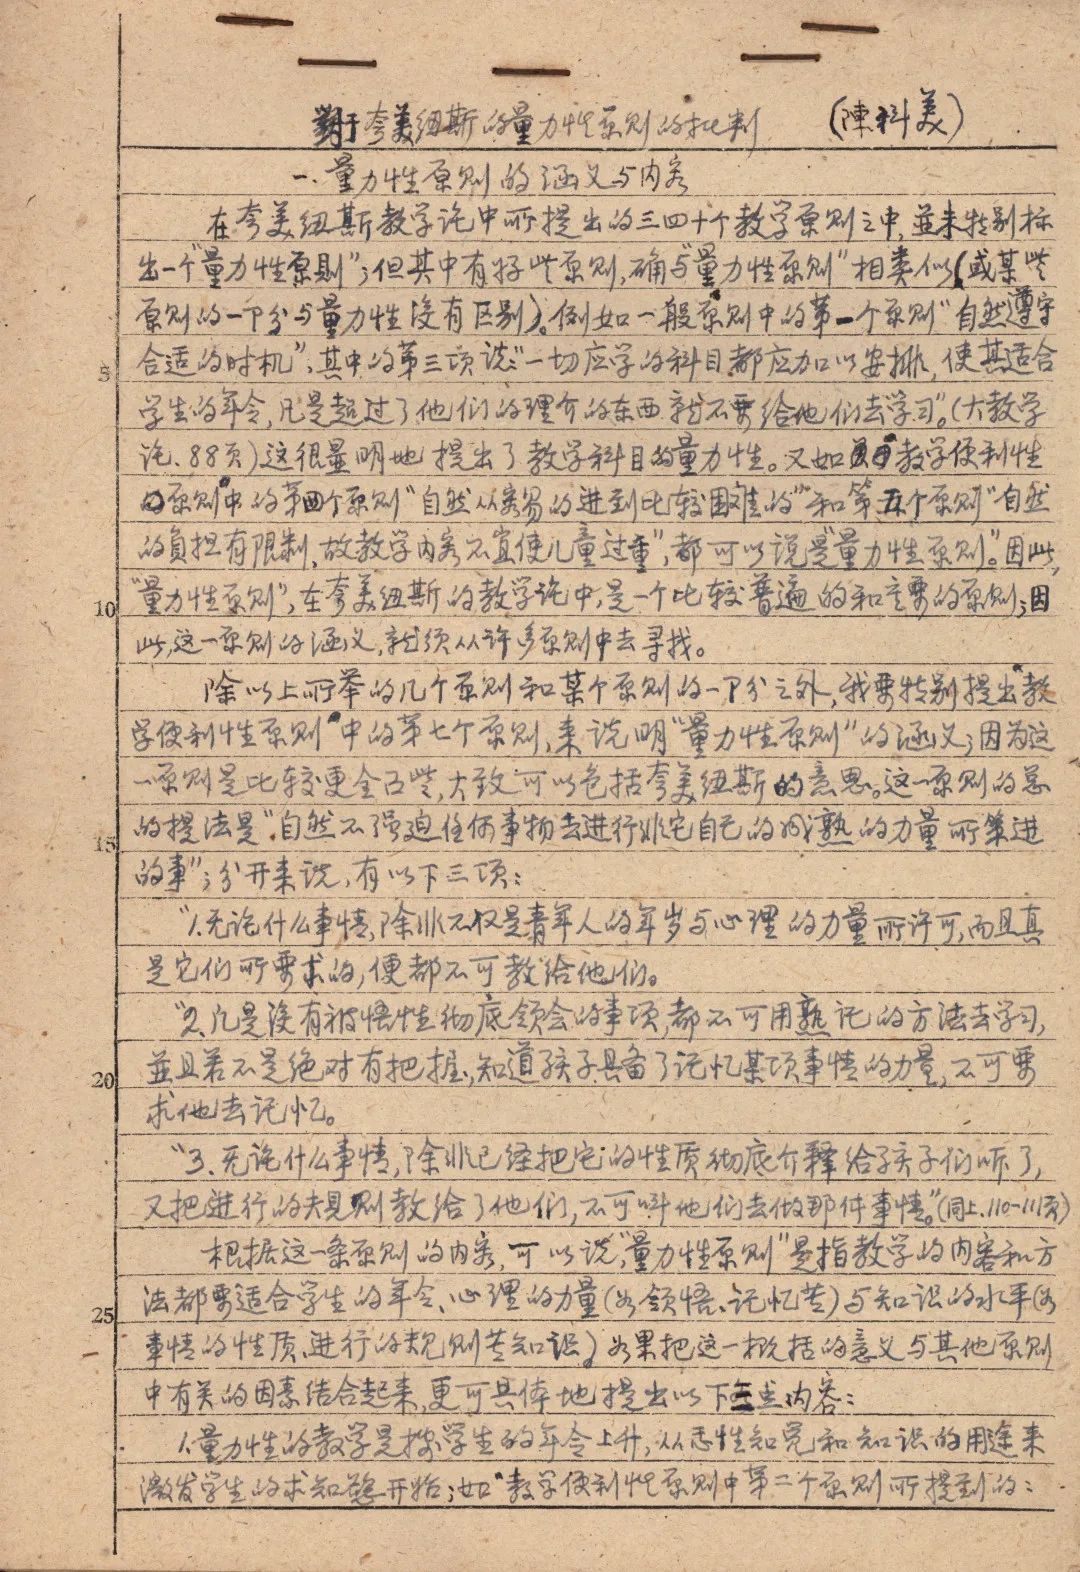 對于夸美纽斯的量力性原则的批判 (陳科美)
一.量力性原则的涵义与内容
在夸美纽斯教学论中所提出的三四十个教学原则之中,並未特别标
出一个"量力性原则";但其中有好些原则,确与"量力性原则"相类似(或某些
原则的一部分与量力性没有区别)。例如一般原则中的第一个原则"自然遵守
5 合适的时机",其中的第三项说:"一切应学的科目都应加以安排,使其适合
学生的年令,凡是超过了他们的理介的东西就不要给他们去学习"。(大教学
论、88页)这很显明地提出了教学科目的量力性。又如教学便利性
的原则中的第四个原则"自然从容易的进到比较困难的"和第五个原则"自然
的負担有限制,故教学内容不宜使儿童过重",都可以说是"量力性原则"。因此,
10 "量力性原则",在夸美纽斯的教学论中,是一个比较普遍的和主要的原则;因
此,这一原则的涵义,就须从许多原则中去寻找。
除以上所举的几个原则和某个原则的一部分之外,我要特别提出"教
学便利性原则"中的第七个原则,来说明"量力性原则"的涵义;因为这
一原则是比较更全面些,大致可以包括夸美纽斯的意思。这一原则的总
15 的提法是"自然不强迫任何事物去进行非它自己的成熟的力量所策进
的事";分开来说,有以下三项:
"1.无论什么事情,除非不仅是青年人的年岁与心理的力量所许可,而且真
是它们所要求的,便都不可教给他们。
"2、凡是没有被悟性彻底领会的事项,都不可用熟记的方法去学习,
20 並且若不是绝对有把握,知道孩子具备了记忆某项事情的力量,不可要
求他去记忆。
"3、无论什么事情,除非已经把它的性质彻底介释给孩子们听了,
又把进行的规则教给了他们,不可叫他们去做那件事情。"(同上.110-111页)
根据这一条原则的内容,可以说"量力性原则"是指教学的内容和方
25 法都要适合学生的年令、心理的力量(如领悟、记忆等)与知识的水平(如
事情的性质、进行的规则等知识)。如果把这一概括的意义与其他原则
中有关的因素结合起来,更可具体地提出以下三点内容:
1.量力性的教学是按学生的年令上升,从悉性知觉和知识的用途来
激发学生的求知慾开始;如"教学便利性原则中第二个原则所提到的: